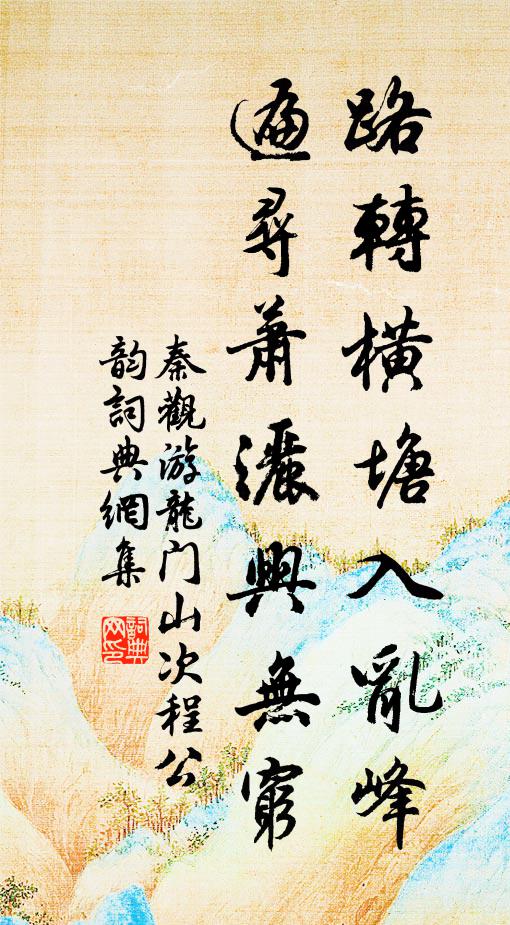 路轉橫塘入亂峰
遍尋蕭灑興無窮
秦觀游龍门山次程公
韵詞典網集
詞典网印